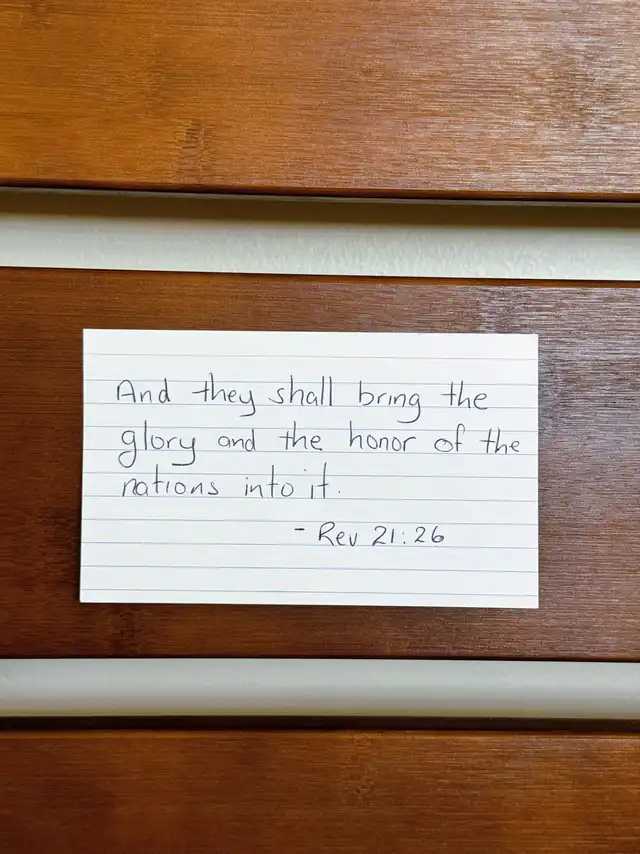 And they shall bring the
glory and the honor of the
nations into it.
- Rev 21:26